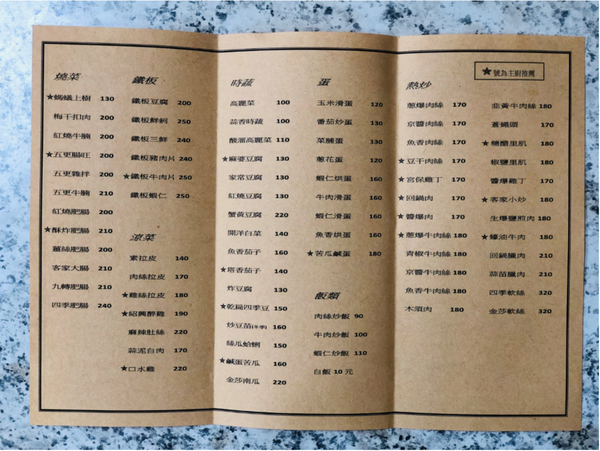 ★號為主廚推薦
燒菜
★螞蟻上樹 130
梅干扣肉 200
紅燒牛腩 200
★五更腸旺 210
五更雜拌 200
五更牛腩 210
紅燒肥腸 200
★酥炸肥腸 210
薑絲肥腸 200
客家大腸 210
九轉肥腸 240
四季肥腸 240
鐵板
鐵板豆腐 200
鐵板鮮蚵 250
鐵板三鮮 240
鐵板豬肉片 240
★鐵板牛肉片 250
鐵板蝦仁 250
涼菜
素拉皮 140
肉絲拉皮 170
★雞絲拉皮 180
★紹興醉雞 190
麻辣肚絲 220
蒜泥白肉 170
★口水雞 220
時蔬
高麗菜 100
蒜香時蔬 100
酸溜高麗菜 110
★麻婆豆腐 130
家常豆腐 130
紅燒豆腐 130
蟹黃豆腐 220
開洋白菜 140
魚香茄子 160
★塔香茄子 140
炸豆腐 130
★乾扁四季豆 150
炒豆苗(冬季) 160
絲瓜蛤蜊 150
★鹹蛋苦瓜 160
金莎南瓜 220
蛋
玉米滑蛋 120
番茄炒蛋 130
菜脯蛋 130
蔥花蛋 130
蝦仁烘蛋 160
牛肉滑蛋 160
蝦仁滑蛋 160
魚香烘蛋 160
★苦瓜鹹蛋 180
飯類
肉絲炒飯 90
牛肉炒飯 100
蝦仁炒飯 110
白飯 10 元
熱炒
蔥爆肉絲 170
京醬肉絲 170
魚香肉絲 170
★豆干肉絲 170
★宮保雞丁 170
★回鍋肉 170
★醬爆肉 170
★蔥爆牛肉絲 180
青椒牛肉絲 180
京醬牛肉絲 180
魚香牛肉絲 180
木須肉 180
韭黃牛肉絲 180
蒼蠅頭 170
★糖醋里肌 180
椒鹽里肌 180
醬爆雞丁 170
★客家小炒 180
生爆鹽煎肉 180
★蠔油牛肉 180
回鍋臘肉 210
蒜苗臘肉 210
四季軟絲 320
金莎軟絲 320